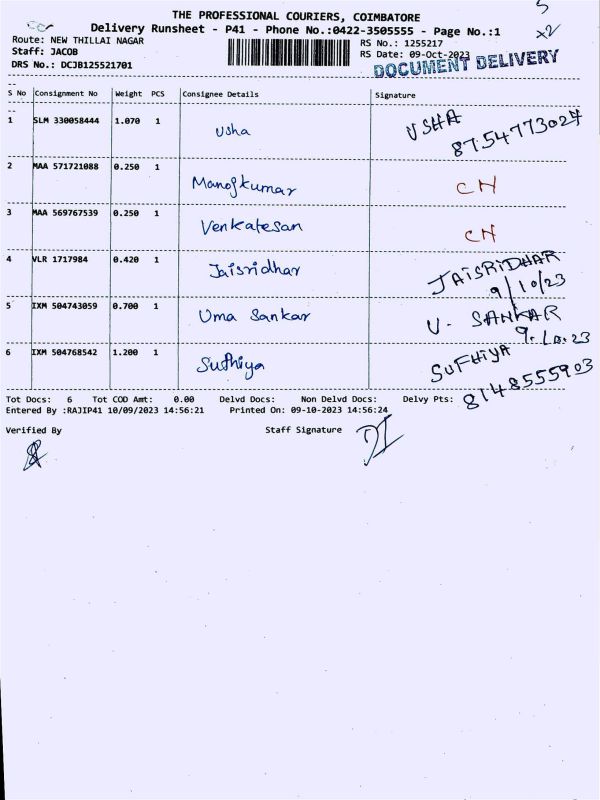 THE PROFESSIONAL COURIERS, COIMBATORE
5
x2
Delivery Runsheet - P41 - Phone No.:0422-3505555 - Page No.:1
Route: NEW THILLAI NAGAR
RS No.: 1255217
Staff: JACOB
RS Date: 09-Oct-2023
DRS No.: DCJB125521701
DOCUMENT DELIVERY
S No Consignment No Weight PCS Consignee Details Signature
1 SLM 330058444 1.070 1 Usha USHA
8754773024
2 MAA 571721088 0.250 1 Manojkumar CN
3 MAA 569767539 0.250 1 Venkatesan CN
4 VLR 1717984 0.420 1 Jaisridhar JAISRIDHAR
9/10/23
5 IXM 504743059 0.700 1 Uma Sankar U. SANKAR
9.10.23
6 IXM 504768542 1.200 1 Suthiya SUFHIYA
8148555903
Tot Docs: 6 Tot COD Amt: 0.00 Delvd Docs: Non Delvd Docs: Delvy Pts:
Entered By :RAJIP41 10/09/2023 14:56:21 Printed On: 09-10-2023 14:56:24
Verified By Staff Signature